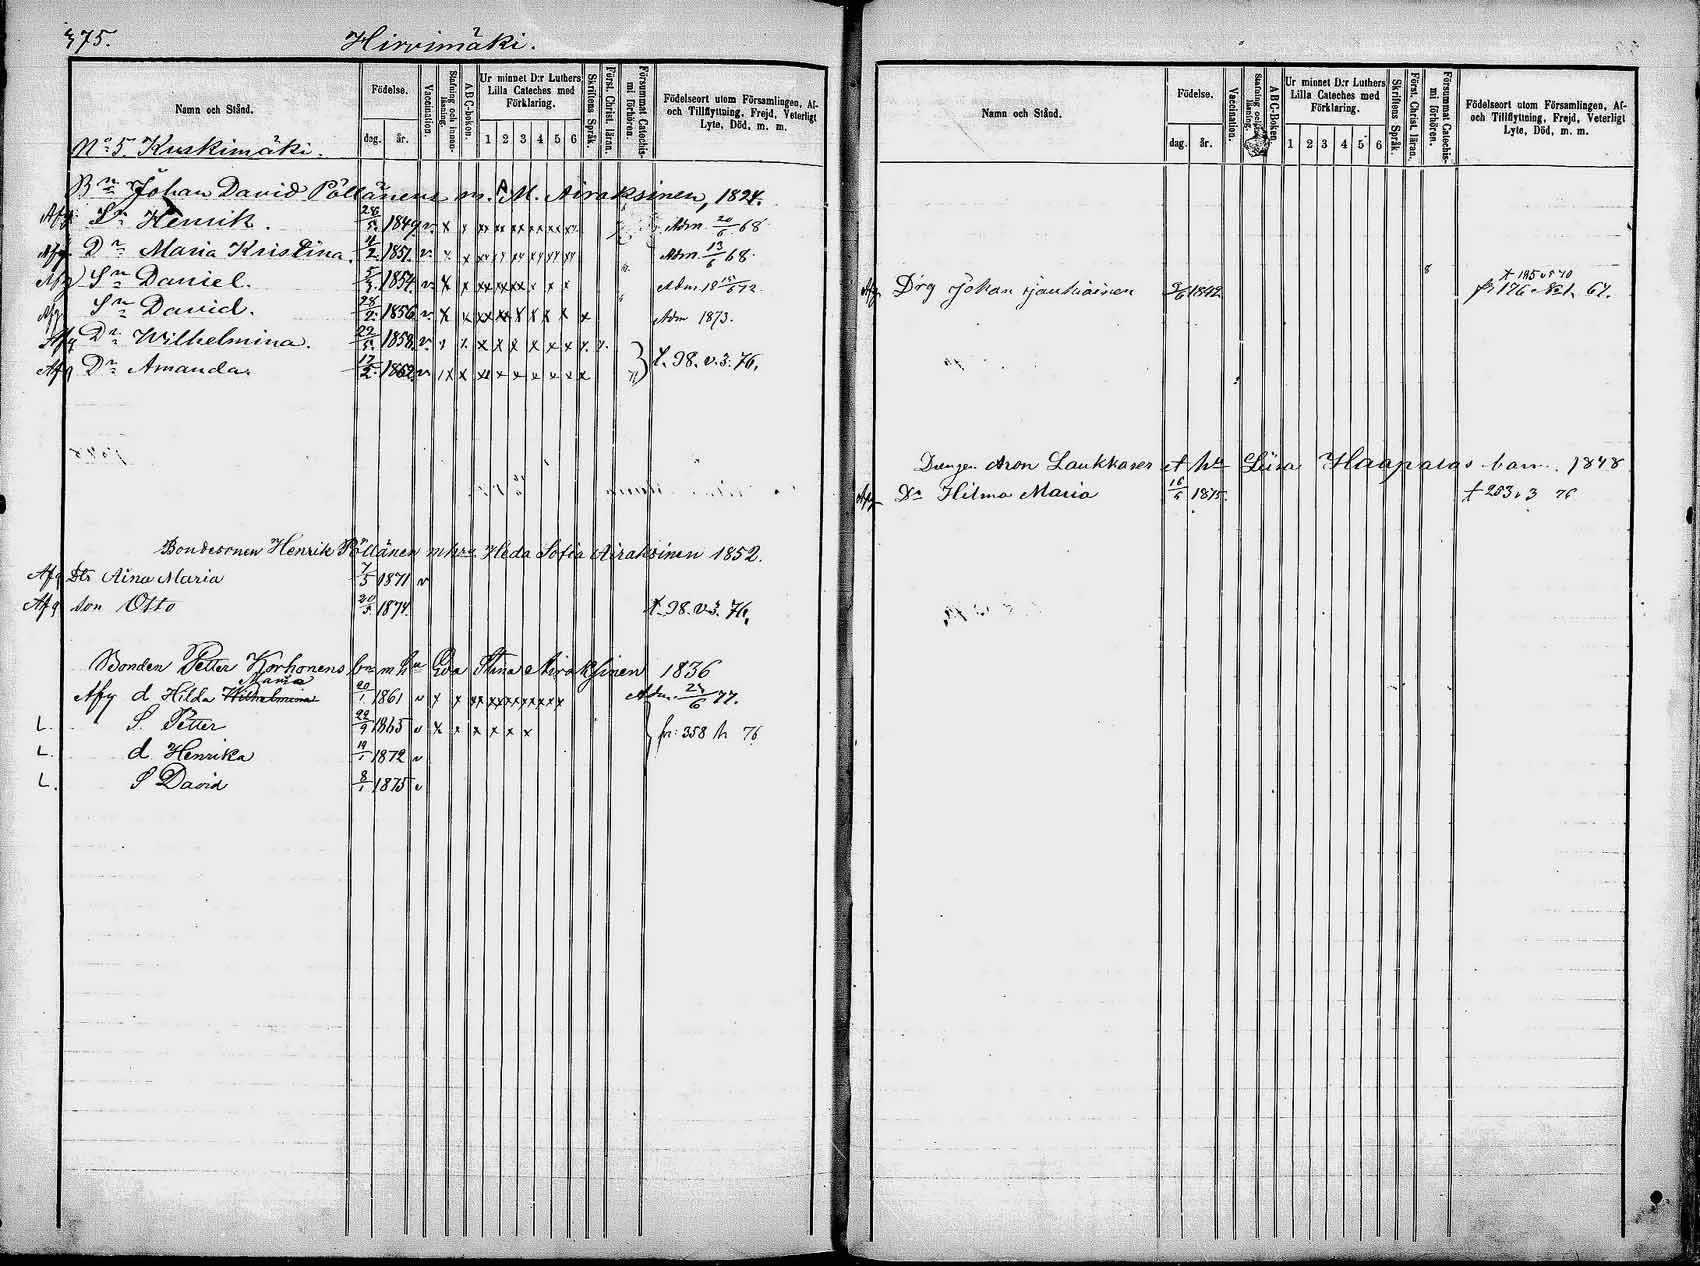 375. Hirvimäki.
Namn och Stånd.
Födelse.
dag. år.
Vaccination.
Stafning och innanläsning.
A B C-boken.
Ur minnet D:r Luthers Lilla Cateches med Förklaring.
1 2 3 4 5 6
Skriftens Språk.
Först. Christ. läran.
Försummat Catechismi förhören.
Födelseort utom Församlingen, Af- och Tillflyttning, Frejd, Veterligt Lyte, Död, m. m.
No 5 Kuskimäki.
Bn Johan David Pöllänens m. A. M. Airaksinen, 1824.
Afg Sn Henrik. 28/5. 1849. v. x x xx xx xx xx xx xx Adm 20/6 68
Afg. Dr Maria Kristina. 4/2. 1851. v. Adm. 13/6 68.
Afg Sn Daniel. 5/3. 1854. v. x x xx xx xx x x x Adm 18 15/6 72.
Afg Sn David. 28/2. 1856. v. x x xx xx x x x x x Adm 1873.
Afg Dr Wilhelmina. 22/5. 1858. v. x x x x x x
Afg Dr Amanda. 17/2. 1862. v. x x xx x x x x x x } t. 98. v. 3. 76.
Bondesonen Henrik Pöllänen m hru Heda Sofia Airaksinen 1852.
Afg Dtr Aina Maria 7/5 1871 v
Afg son Otto 20/5. 1874. t. 98. v. 3. 76.
Bonden Petter Korhonens bn m hu Eva Stina Airaksinen 1836
Maria
Afg d Hilda Wilhelmina 20/1 1861 v x x xx xx xx xx x x Adm. 24/6 77.
L. S. Petter 22/9 1865 v x x x x x x } fr: 358 h 76
L. d Henrika 19/1 1872 v
L. S David 8/1 1875 v
Namn och Stånd.
Födelse.
dag. år.
Vaccination.
Stafning och innanläsning.
A B C-Boken.
Ur minnet D:r Luthers Lilla Cateches med Förklaring.
1 2 3 4 5 6
Skriftens Språk.
Först. Christ. läran.
Försummat Catechismi förhören.
Födelseort utom Församlingen, Af- och Tillflyttning, Frejd, Veterligt Lyte, Död, m. m.
t 195 v 5 70
Afg. Drg Johan 1842 fr 176 No 1. 67.
Drengen Aron Laukkanen et hu Liisa Haapalas barn. 1848
Afg Dr Hilma Maria 16/5 1875. t 253 v 3 76